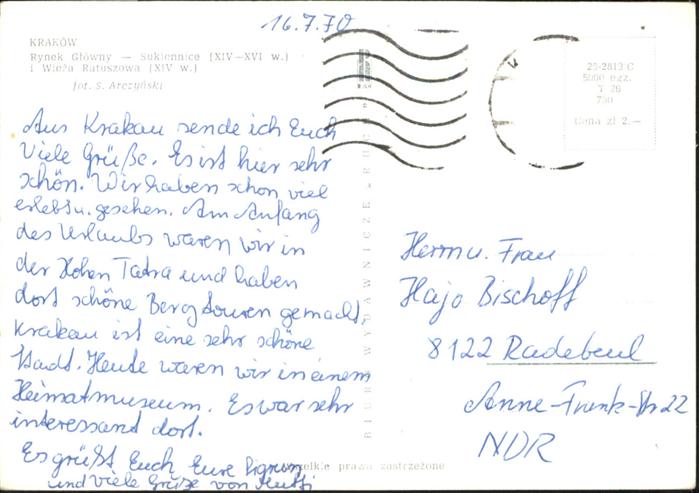 16.7.70
KRAKÓW
Rynek Główny — Sukiennice (XIV—XVI w.)
i Wieża Ratuszowa (XIV w.)
fot. S. Arczyński
Aus Krakau sende ich Euch
viele Grüße. Es ist hier sehr
schön. Wir haben schon viel
erlebt u. gesehen. Am Anfang
des Urlaubs waren wir in
der Hohen Tatra und haben
dort schöne Bergtouren gemacht.
Krakau ist eine sehr schöne
Stadt. Heute waren wir in einem
Heimatmuseum. Es war sehr
interessand dort.
Es grüßt Euch Eure
und viele Grüße von Mutti
25-2813 C
5000 egz.
T 26
Cena zł 2.—
Herrn u. Frau
Hajo Bischoff
8122 Radebeul
Anne-Frank-Str 22
NDR
BIURO WYDAWNICZE
Wszelkie prawa zastrzeżone